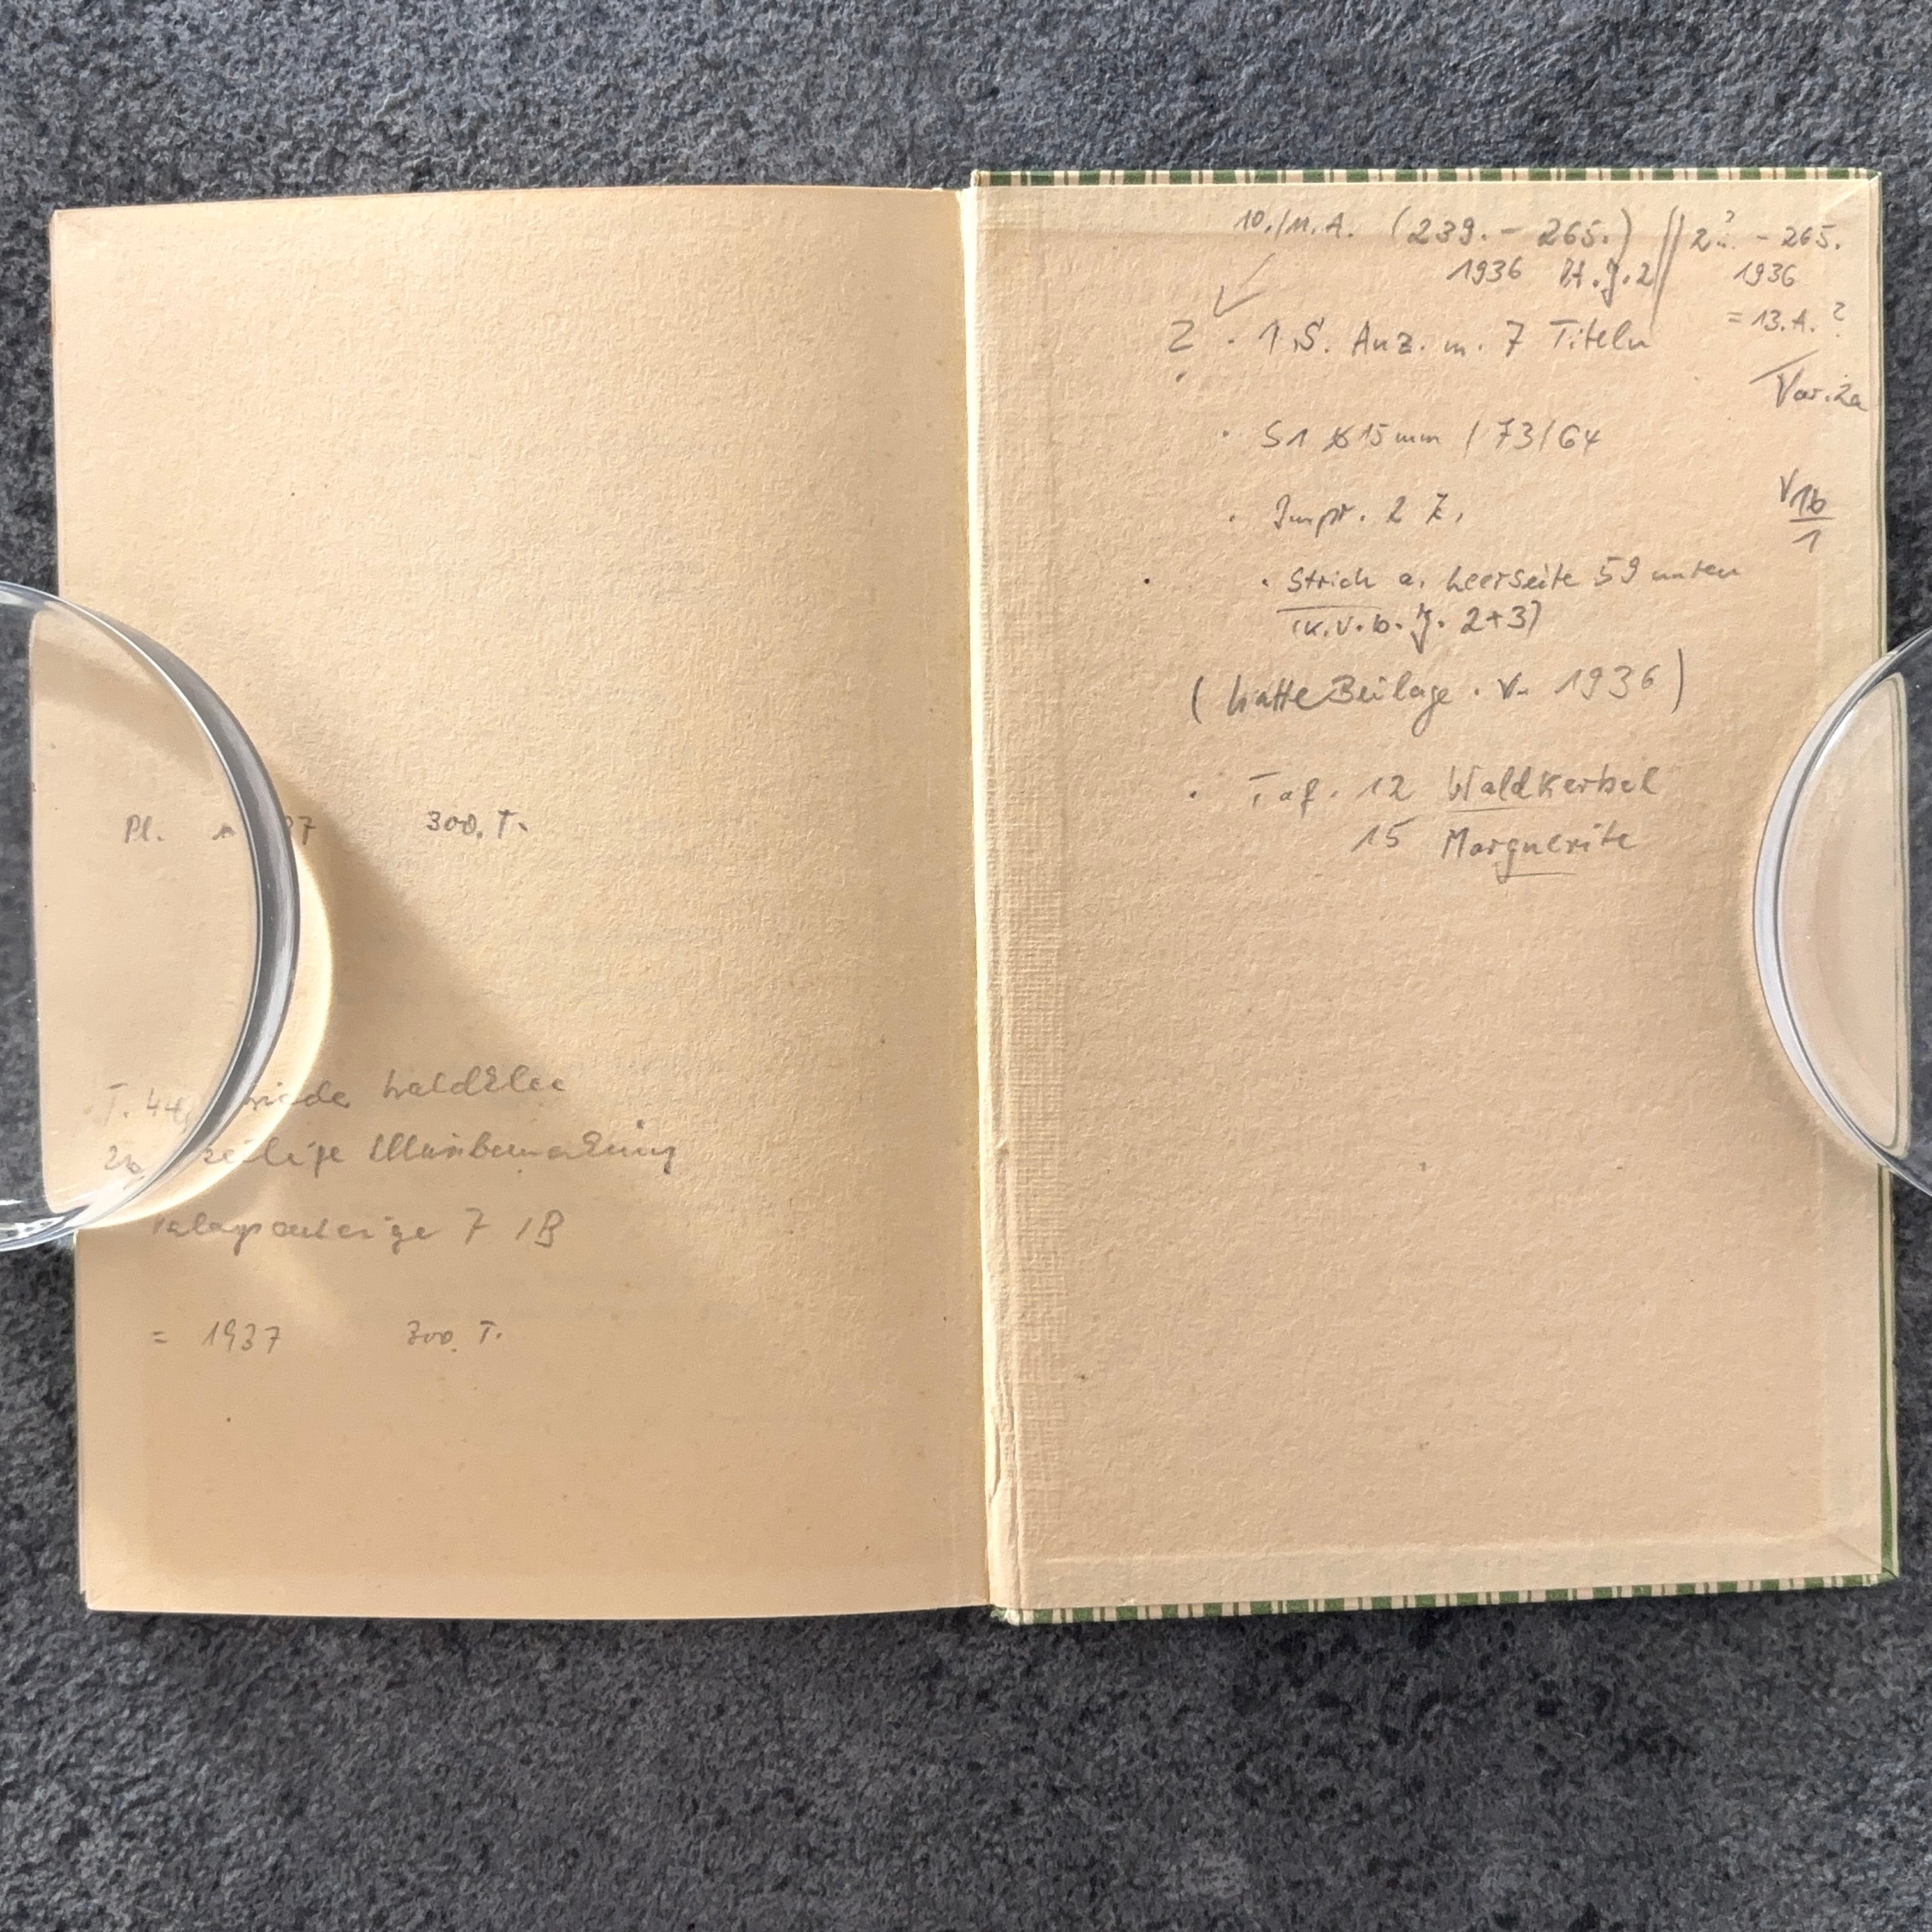 Pl. 37 300. T.
T. 44 wieder Waldklee
2 zeilige
7 1B
= 1937 300. T.
10./11.A. (239. - 265.) // 2?. - 265.
1936 J.2 // 1936
= 13.A.?
2 · 1 S. Anz. m. 7 Titeln
Var.2a
· S1 15mm / 73/64
V1b
1
· Impr. 2 Z.
· Strich a. Leerseite 59 unten
(K.V.b. J. 2+3)
(hatte Beilage · V. 1936)
· Taf. 12 Waldkerbel
15 Marguerite